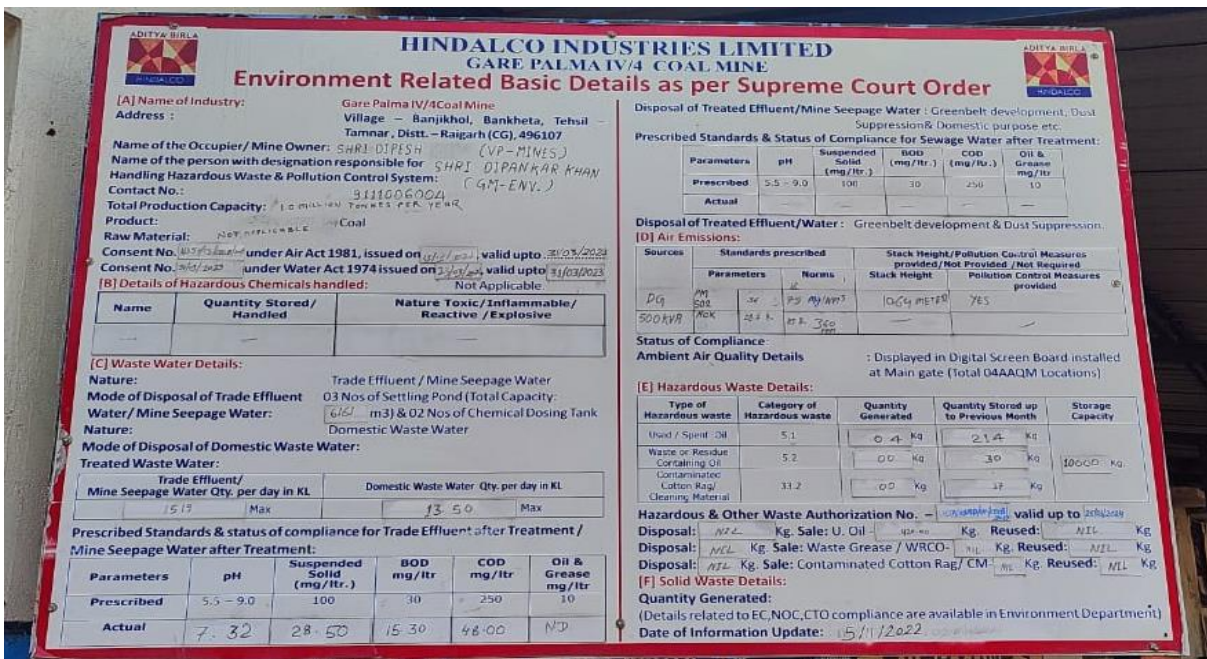 ADITYA BIRLA
HINDALCO
HINDALCO INDUSTRIES LIMITED
GARE PALMA IV/4 COAL MINE
Environment Related Basic Details as per Supreme Court Order
ADITYA BIRLA
HINDALCO
[A] Name of Industry: Gare Palma IV/4Coal Mine
Address : Village – Banjikhol, Bankheta, Tehsil –
Tamnar, Distt. – Raigarh (CG), 496107
Name of the Occupier/ Mine Owner: SHRI DIPESH (VP-MINES)
Name of the person with designation responsible for SHRI DIPANKAR KHAN
Handling Hazardous Waste & Pollution Control System: (GM-ENV.)
Contact No.: 9111006004
Total Production Capacity: 1.0 MILLION TONNES PER YEAR
Product: Coal
Raw Material: NOT APPLICABLE
Consent No. under Air Act 1981, issued on valid upto
Consent No. under Water Act 1974 issued on , valid upto 31/03/2023
[B] Details of Hazardous Chemicals handled: Not Applicable
Name Quantity Stored/ Handled Nature Toxic/Inflammable/ Reactive /Explosive
— — —
[C] Waste Water Details:
Nature: Trade Effluent / Mine Seepage Water
Mode of Disposal of Trade Effluent 03 Nos of Settling Pond (Total Capacity:
Water/ Mine Seepage Water: 6161 m3) & 02 Nos of Chemical Dosing Tank
Nature: Domestic Waste Water
Mode of Disposal of Domestic Waste Water:
Treated Waste Water:
Trade Effluent/ Mine Seepage Water Qty. per day in KL Domestic Waste Water Qty. per day in KL
1519 Max 13.50 Max
Prescribed Standards & status of compliance for Trade Effluent after Treatment /
Mine Seepage Water after Treatment:
Parameters pH Suspended Solid (mg/ltr.) BOD mg/ltr COD mg/ltr Oil & Grease mg/ltr
Prescribed 5.5 – 9.0 100 30 250 10
Actual 7.32 28.50 15.30 48.00 ND
Disposal of Treated Effluent/Mine Seepage Water : Greenbelt development, Dust
Suppression& Domestic purpose etc.
Prescribed Standards & Status of Compliance for Sewage Water after Treatment:
Parameters pH Suspended Solid (mg/ltr.) BOD (mg/ltr.) COD (mg/ltr.) Oil & Grease mg/ltr
Prescribed 5.5 – 9.0 100 30 250 10
Actual — — — — —
Disposal of Treated Effluent/Water : Greenbelt development & Dust Suppression.
[D] Air Emissions:
Sources Standards prescribed Stack Height/Pollution Control Measures provided/Not Provided /Not Required
Parameters Norms Stack Height Pollution Control Measures provided
DG PM SO2 75 Mg/NM3 METER YES
500 KVA NOX 360 — —
Status of Compliance:
Ambient Air Quality Details : Displayed in Digital Screen Board installed
at Main gate (Total 04AAQM Locations)
[E] Hazardous Waste Details:
Type of Hazardous waste Category of Hazardous waste Quantity Generated Quantity Stored up to Previous Month Storage Capacity
Used / Spent Oil 5.1 04 Kg 214 Kg
Waste or Residue Containing Oil 5.2 00 Kg 30 Kg 10000 Kg
Contaminated Cotton Rag/ Cleaning Material 33.2 00 Kg 37 Kg
Hazardous & Other Waste Authorization No. – valid up to
Disposal: NIL Kg. Sale: U. Oil - Kg. Reused: NIL Kg
Disposal: NIL Kg. Sale: Waste Grease / WRCO- NIL Kg. Reused: NIL Kg
Disposal: NIL Kg. Sale: Contaminated Cotton Rag/ CM- NIL Kg. Reused: NIL Kg
[F] Solid Waste Details:
Quantity Generated:
(Details related to EC,NOC,CTO compliance are available in Environment Department)
Date of Information Update: 5/1/2022